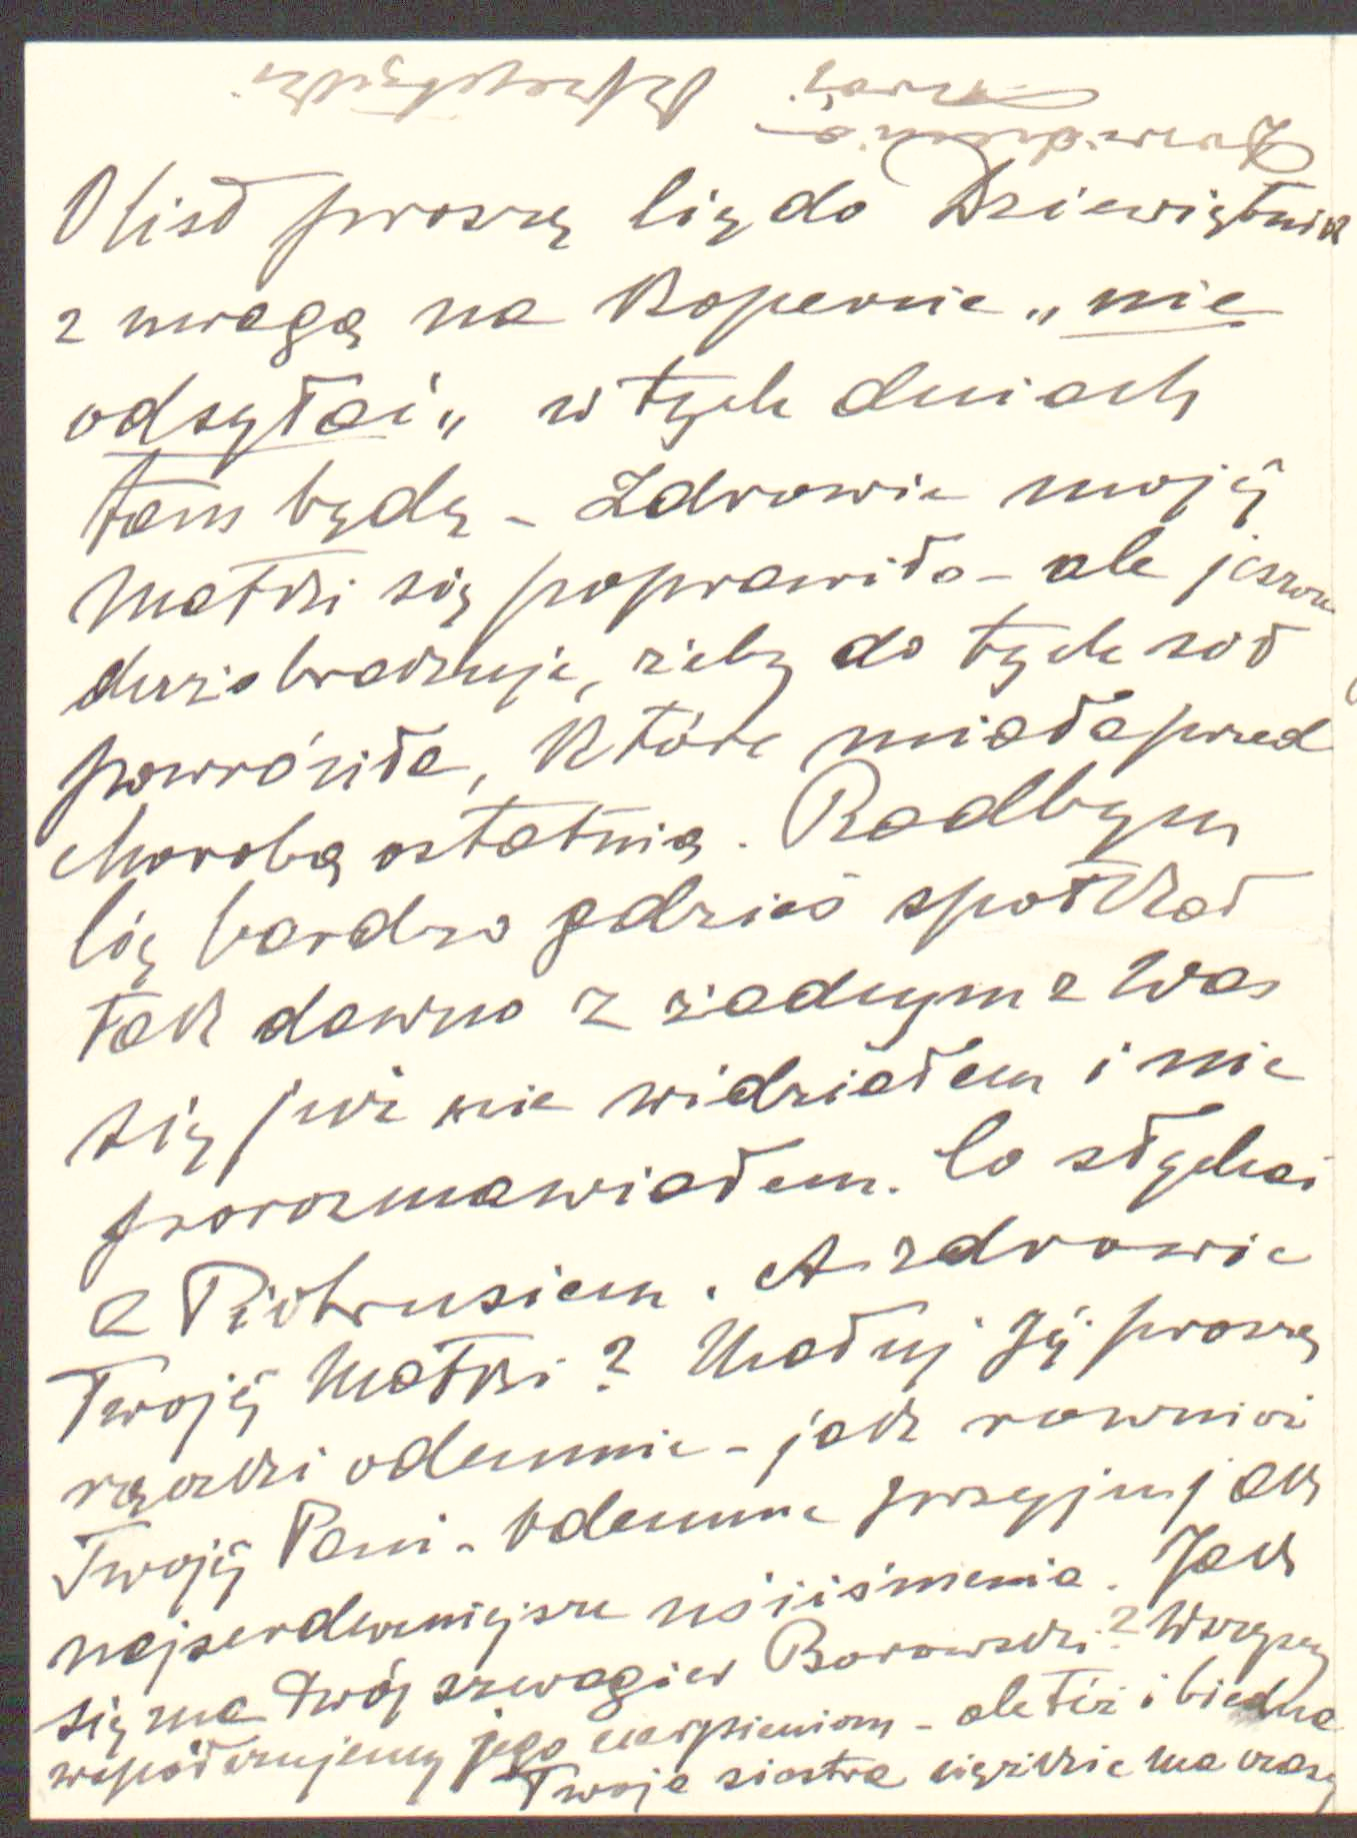 O list proszę Cię do Dziewiętnik
z uwagą na Kopercie „nie
odsyłać„ w tych dniach
tam będę – Zdrowie mojéj
Matki się poprawiło – ale jeszcze
dużo brakuje, żeby do tych sił
powróciła, które miała przed
chorobą ostatnią. Radbym
Cię bardzo gdzieś spotkał
tak dawno z żadnym z Was
się już nie widziałem i nie
porozmawiałem. Co słychać
z Piotrusiem. A zdrowie
Twojéj Matki? Ucałuj Jéj proszę
rączki odemnie – jak rownież
Twojéj Pani – Odemnie przyjmij jak
najserdeczniejsze uściśnienia. Jak
się ma twój szwagier Borowski? Wszyscy
współczujemy jego cierpieniom – ale też i biedna
Twoja siostra ciężkie ma czasy